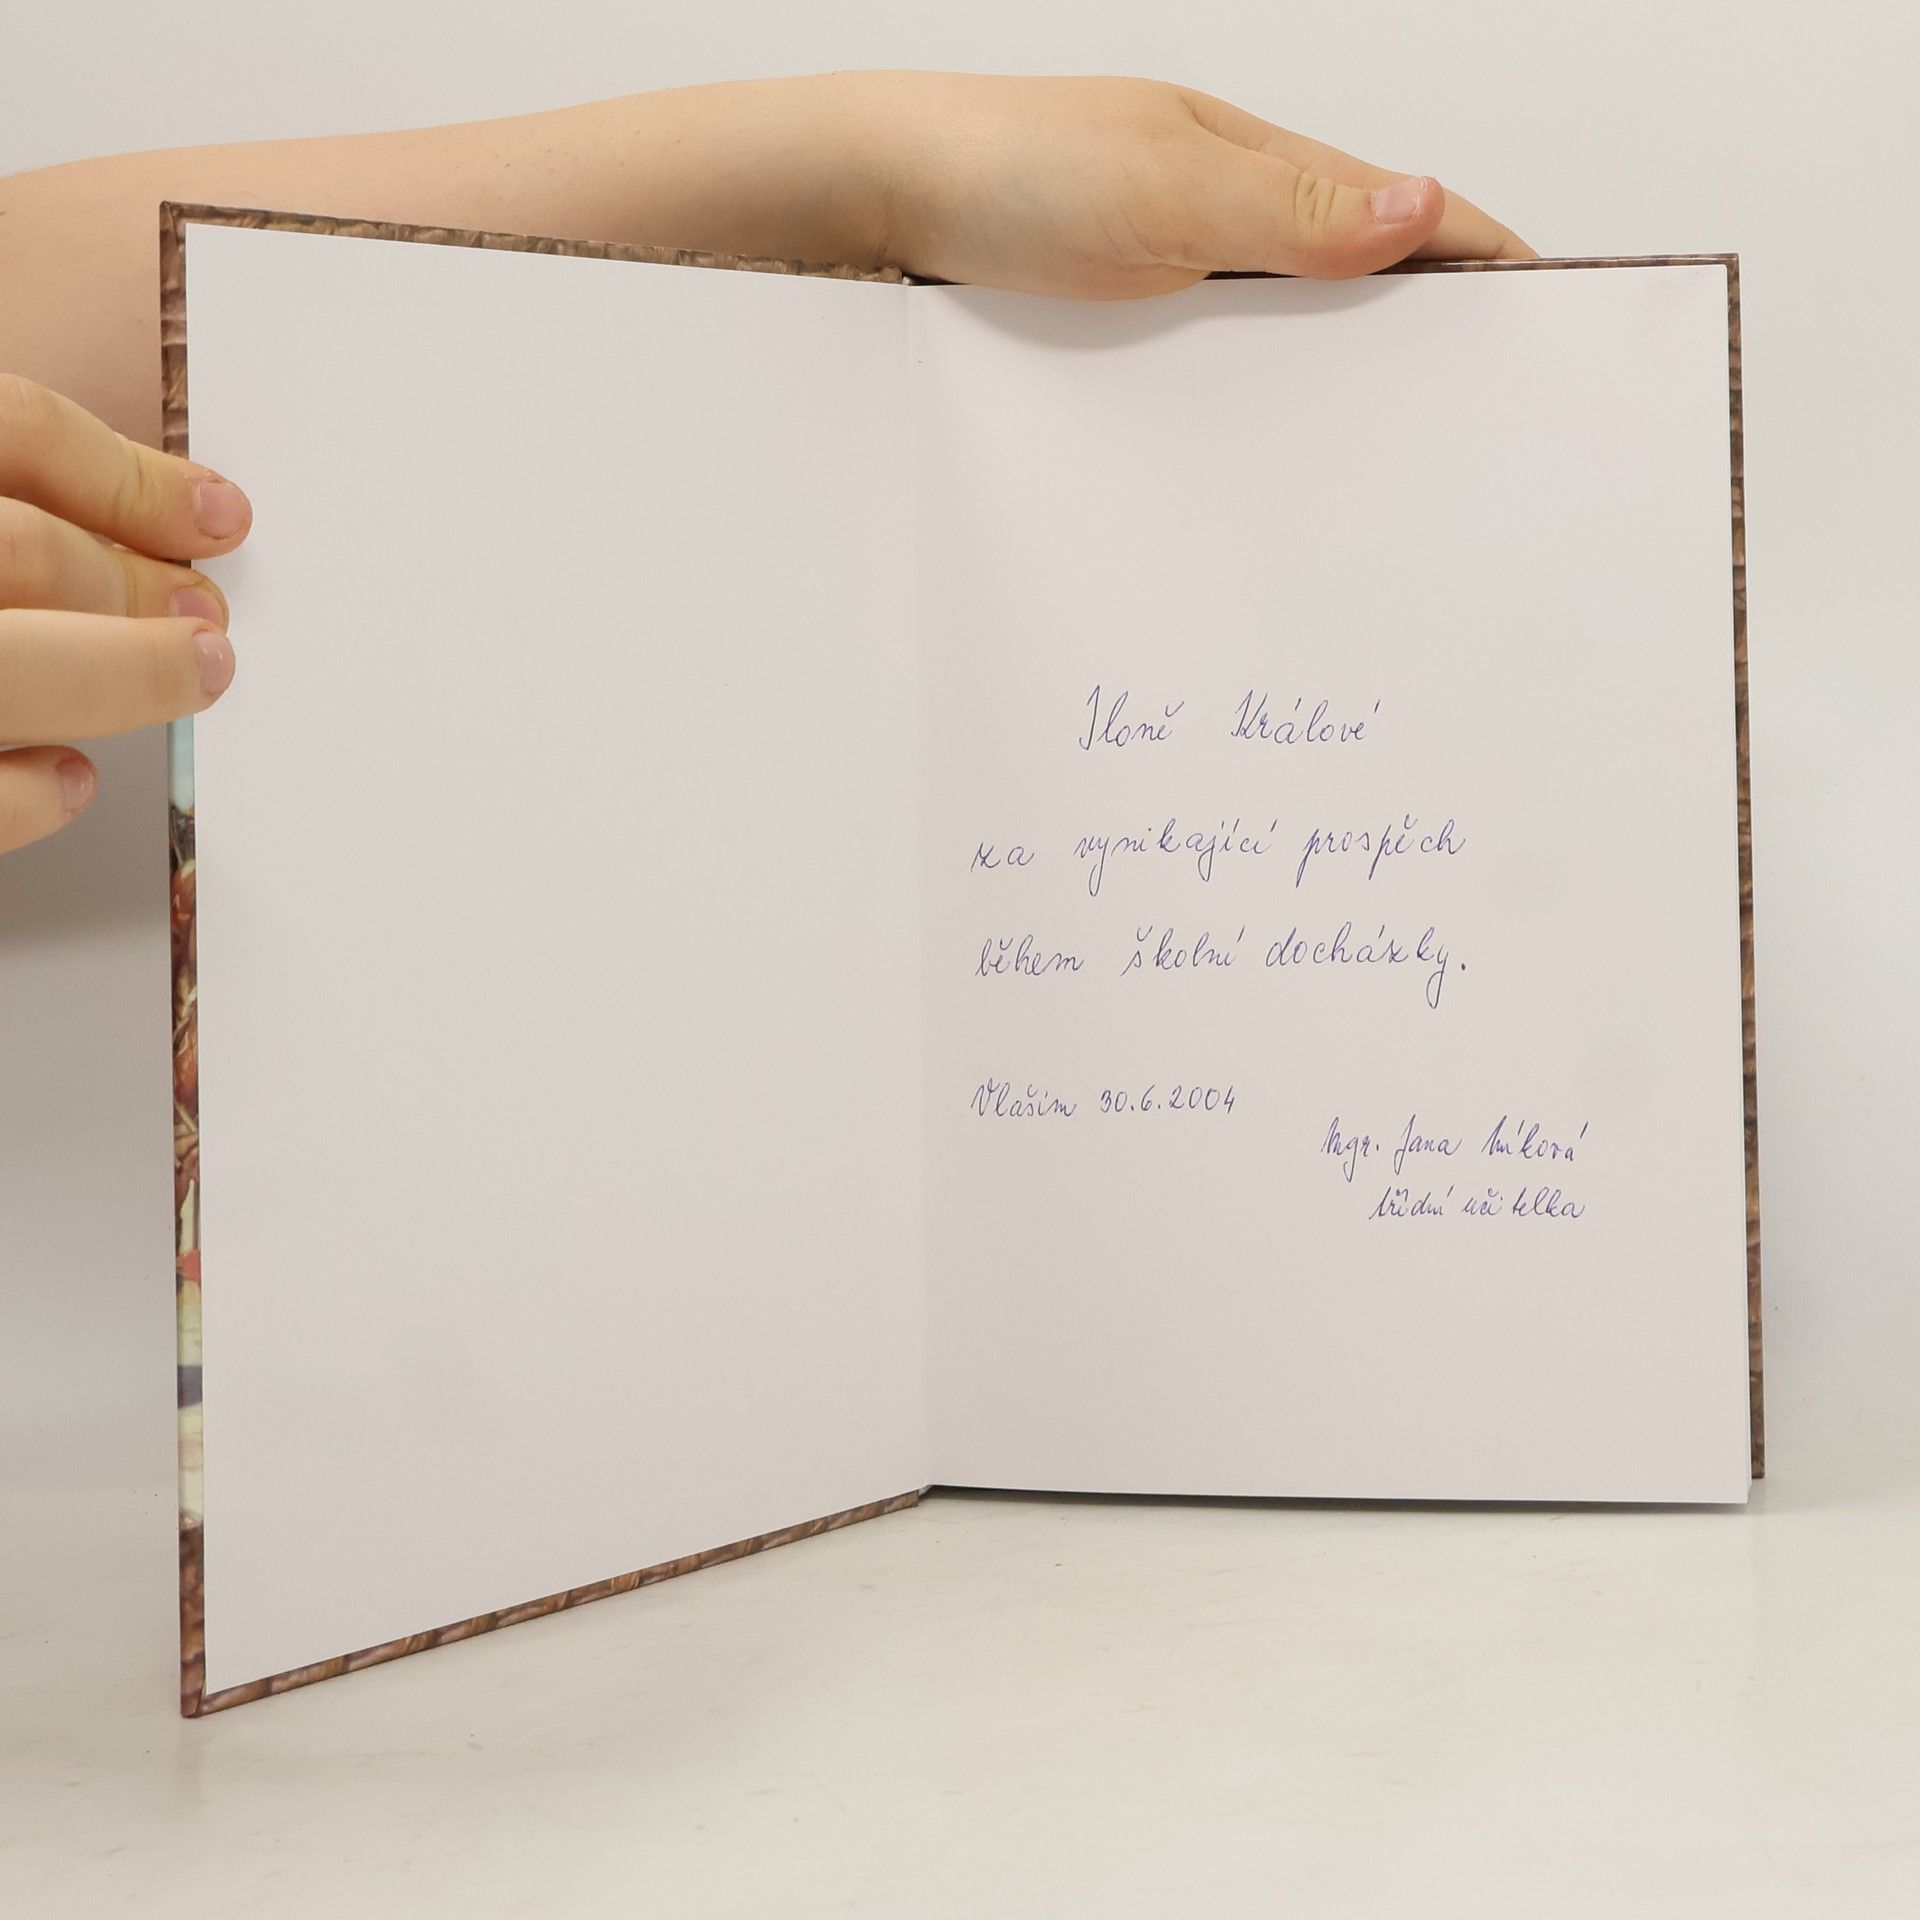 Iloně Králové
za vynikající prospěch
během školní docházky.
Vlašim 30.6.2004
Mgr. Jana
třídní učitelka